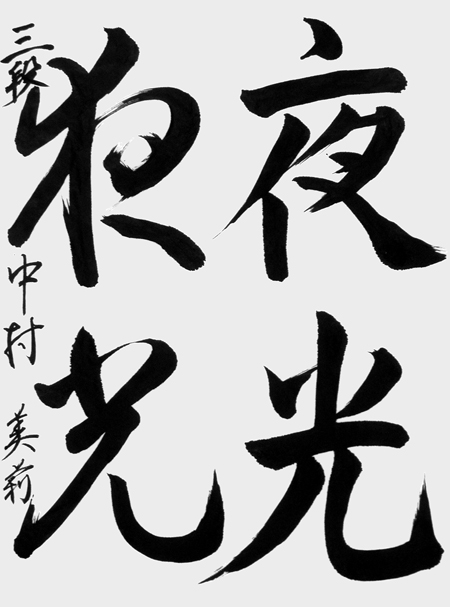 夜光
夜光
三段 中村 美莉